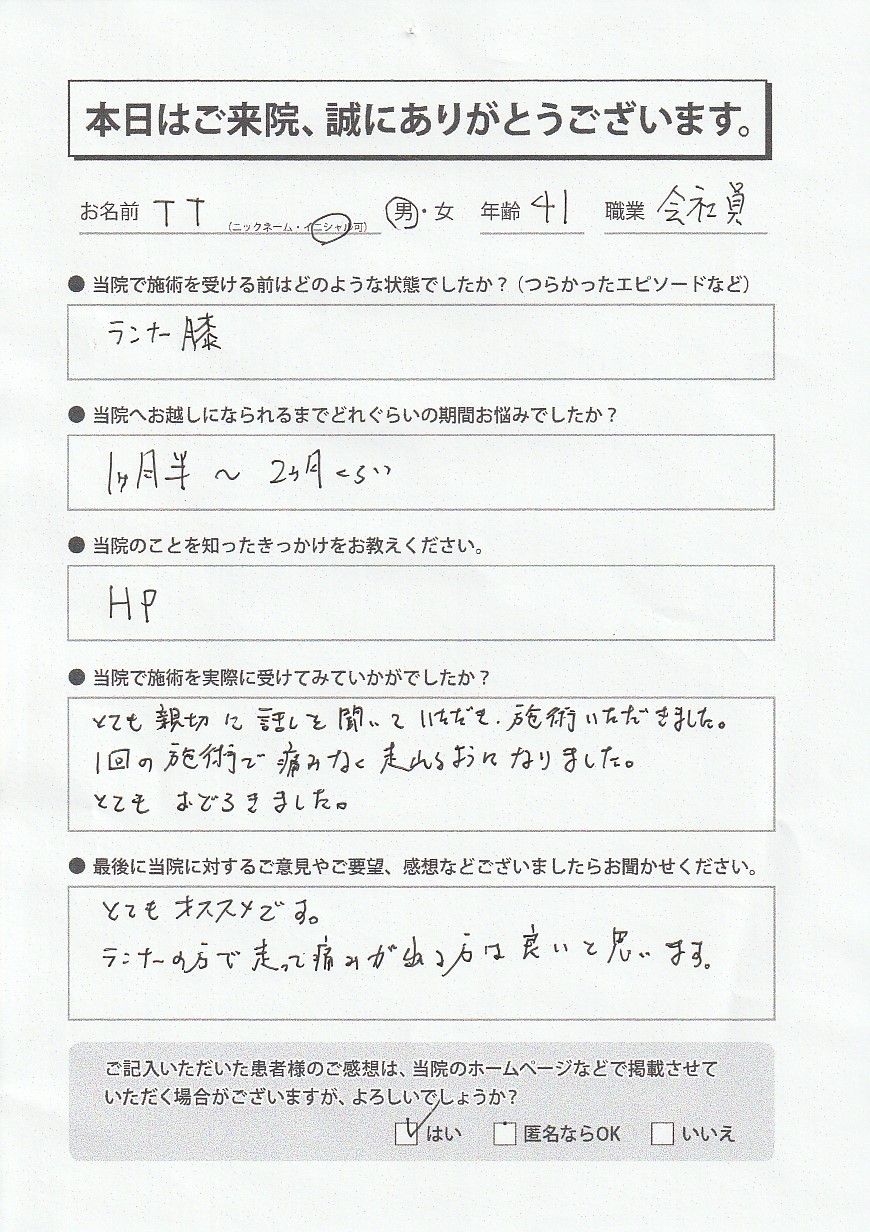 本日はご来院、誠にありがとうございます。
お名前 TT (ニックネーム・イニシャル可) 男・女 年齢 41 職業 会社員
● 当院で施術を受ける前はどのような状態でしたか？（つらかったエピソードなど）
ランナー膝
● 当院へお越しになられるまでどれぐらいの期間お悩みでしたか？
1ヶ月半 〜 2ヶ月くらい
● 当院のことを知ったきっかけをお教えください。
HP
● 当院で施術を実際に受けてみていかがでしたか？
とても親切に話しを聞いていただき、施術いただきました。
1回の施術で痛みなく走れるおになりました。
とてもおどろきました。
● 最後に当院に対するご意見やご要望、感想などございましたらお聞かせください。
とてもオススメです。
ランナーの方で走って痛みが出る方は良いと思います。
ご記入いただいた患者様のご感想は、当院のホームページなどで掲載させて
いただく場合がございますが、よろしいでしょうか？
はい 匿名ならOK いいえ